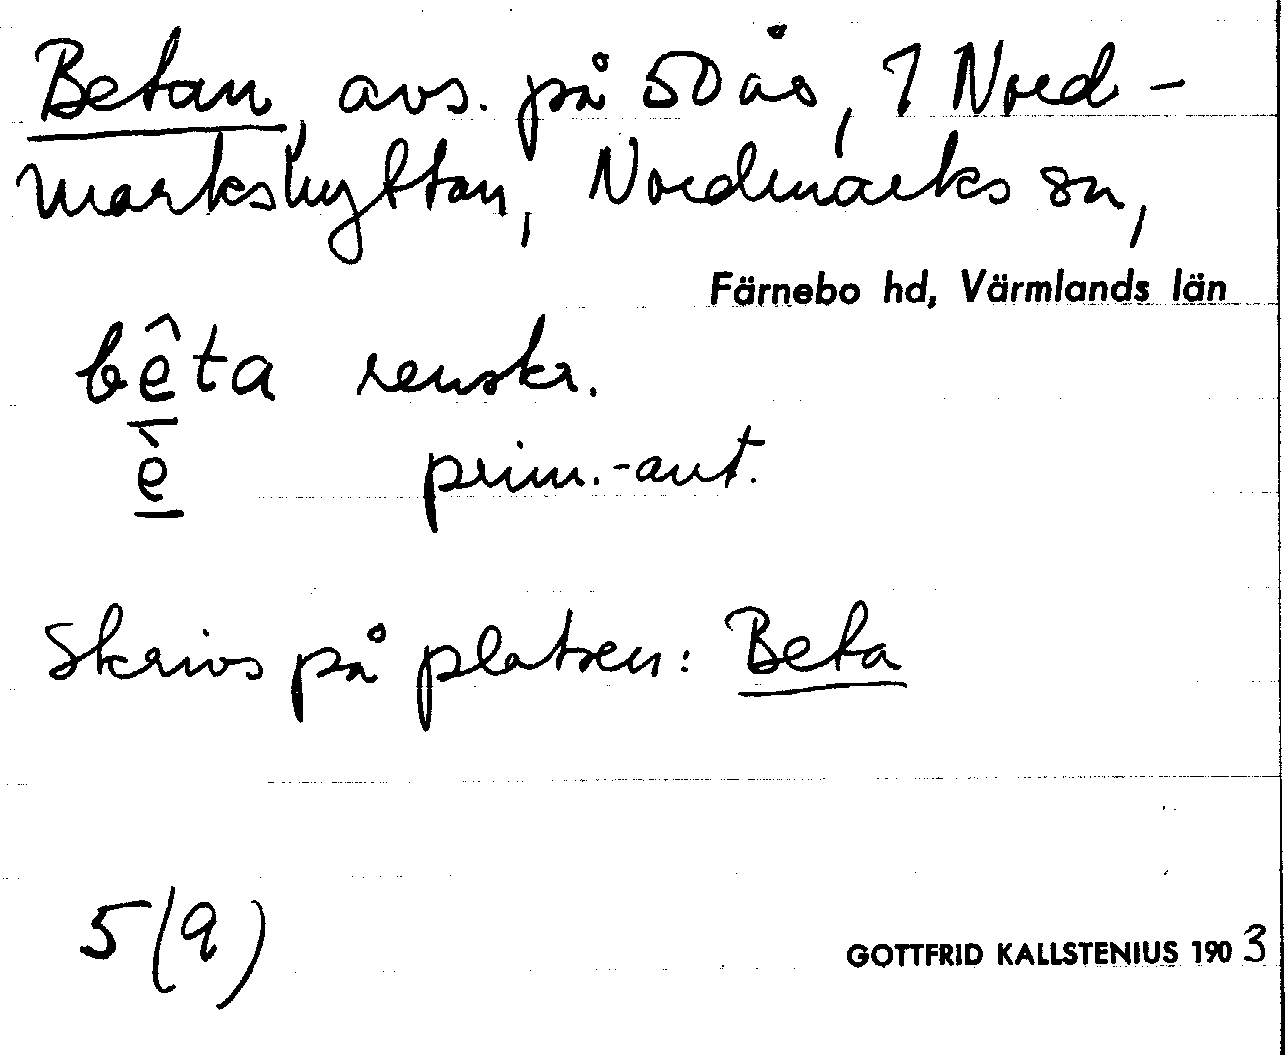 Betan, avs. på 50 år, 1 Nord-
markshyttan, Nordmarks sn,
Färnebo hd, Värmlands län
bêta renskr.
è prim.-ant.
Skrivs på platsen: Beta
5(9)
GOTTFRID KALLSTENIUS 1903